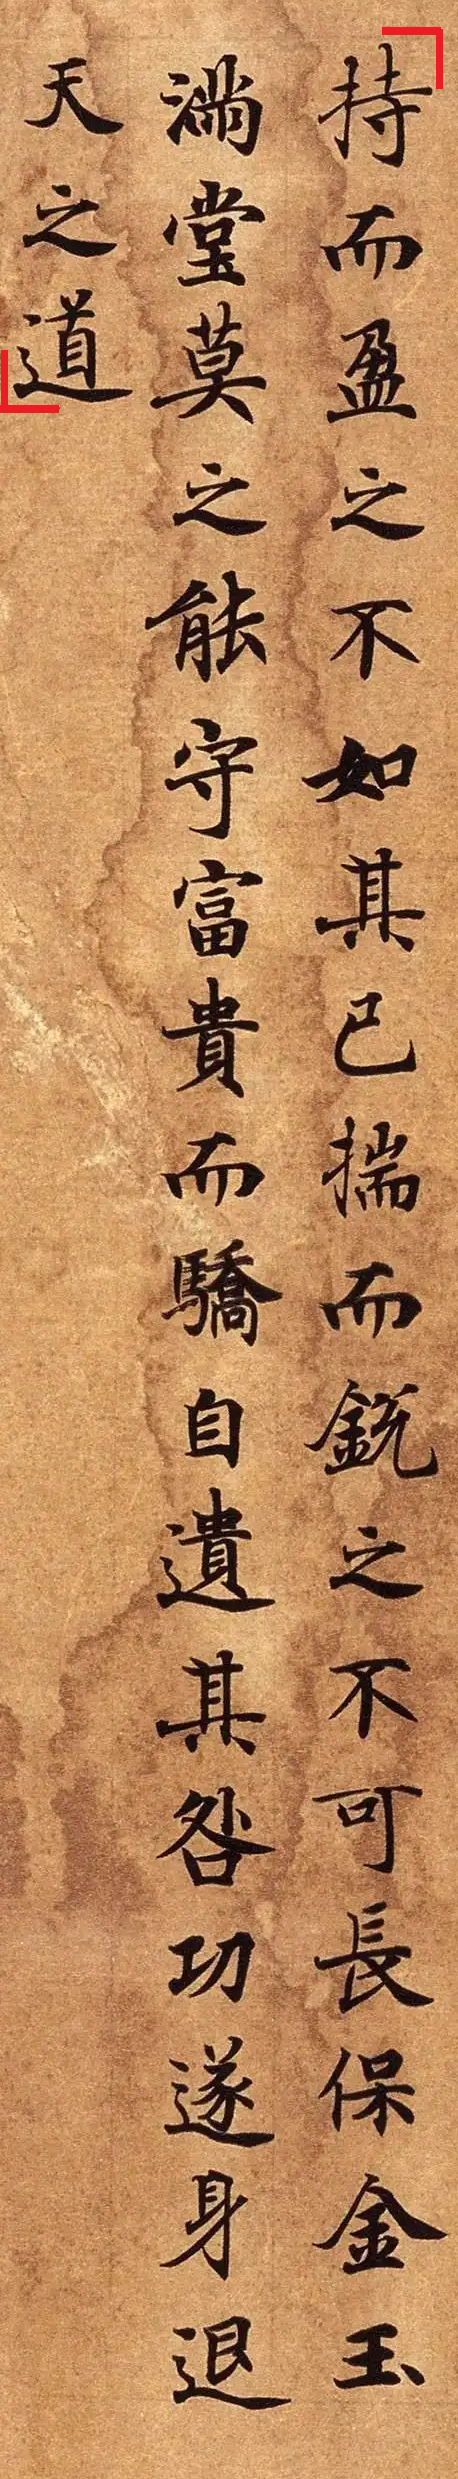 持而盈之不如其已揣而銳之不可長保金玉
滿堂莫之能守富貴而驕自遺其咎功遂身退
天之道